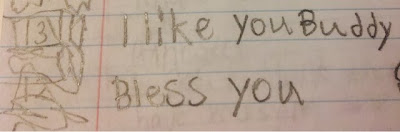 13 I like you Buddy
Bless you